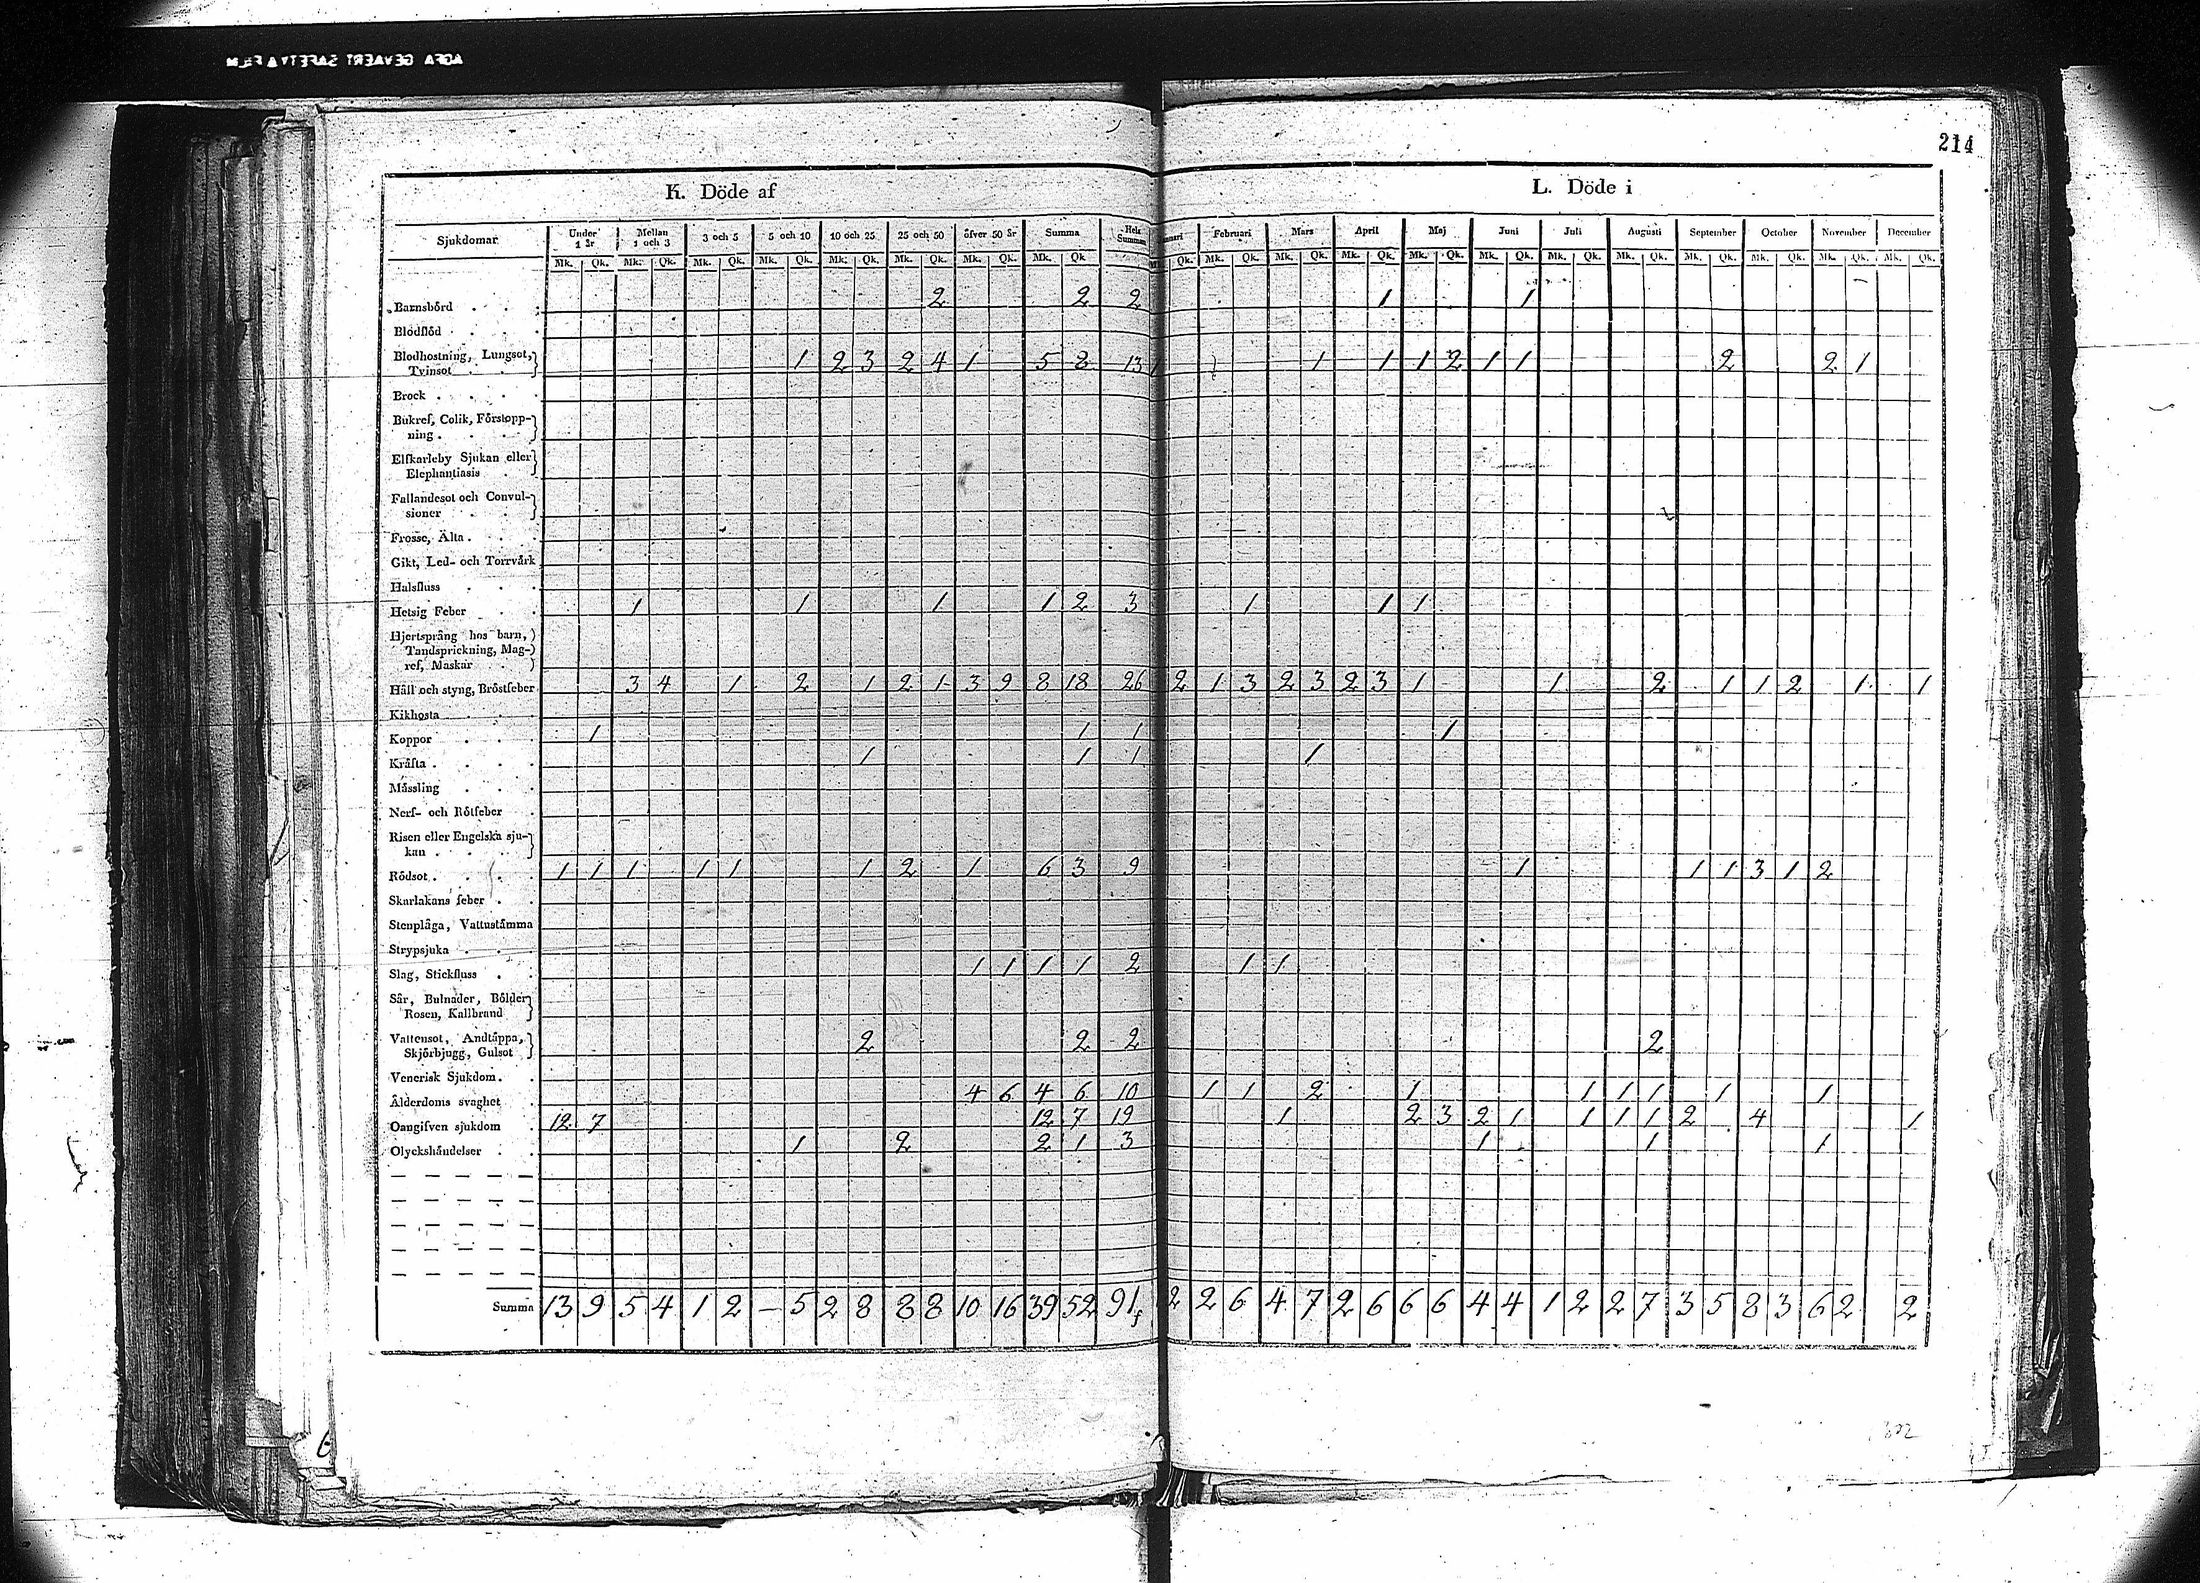 AGFA GEVAERT SAFETY A FILM
214
K. Döde af
L. Döde i
Sjukdomar. Under 1 år Mellan 1 och 3 3 och 5 5 och 10 10 och 25 25 och 50 öfver 50 år Summa Hela Summan Februari Mars April Maj Juni Juli Augusti September October November December
Mk. Qk. Mk. Qk. Mk. Qk. Mk. Qk. Mk. Qk. Mk. Qk. Mk. Qk. Mk. Qk Qk. Mk. Qk. Mk. Qk. Mk. Qk. Mk. Qk. Mk. Qk. Mk. Qk. Mk. Qk. Mk. Qk. Mk. Qk. Mk. Qk. Mk. Qk.
Barnsbörd . . . 2 2 2 1 1
Blodflöd . . .
Blodhostning, Lungsot,
Tvinsot . . 1 2 3 2 4 1 5 8 13 1 1 1 1 2 1 1 2 2 1
Brock . . . .
Bukref, Colik, Förstopp-
ning . . . .
Elfkarleby Sjukan eller
Elephantiasis .
Fallandesot och Convul-
sioner . .
Frosse, Älta . . .
Gikt, Led- och Torrvärk
Halsfluss . . .
Hetsig Feber . . 1 1 1 1 2 3 1 1 1
Hjertsprång hos barn,
Tandsprickning, Mag-
ref, Maskar . .
Håll och styng, Bröstfeber 3 4 1 2 1 2 1 3 9 8 18 26 2 1 3 2 3 2 3 1 1 2 1 1 2 1 1
Kikhosta . . .
Koppor . . . 1 1 1 1
Kräfta . . . . 1 1 1 1
Mässling . . .
Nerf- och Rötfeber .
Risen eller Engelska sju-
kan . . . .
Rödsot . . . . 1 1 1 1 1 1 2 1 6 3 9 1 1 1 3 1 2
Skarlakans feber . .
Stenplåga, Vattustämma
Strypsjuka . . .
Slag, Stickfluss . . 1 1 1 1 2 1 1
Sår, Bulnader, Bölder
Rosen, Kallbrand
Vattensot, Andtäppa,
Skjörbjugg, Gulsot 2 2 2 2
Venerisk Sjukdom . .
Ålderdoms svaghet . 4 6 4 6 10 1 1 2 1 1 1 1 1 1
Oangifven sjukdom . 12 7 12 7 19 1 2 3 2 1 1 1 1 2 4 1
Olyckshändelser . . 1 2 2 1 3 1 1 1
Summa 13 9 5 4 1 2 – 5 2 8 8 8 10 16 39 52 91 2 2 6 4 7 2 6 6 6 4 4 1 2 2 7 3 5 8 3 6 2 2